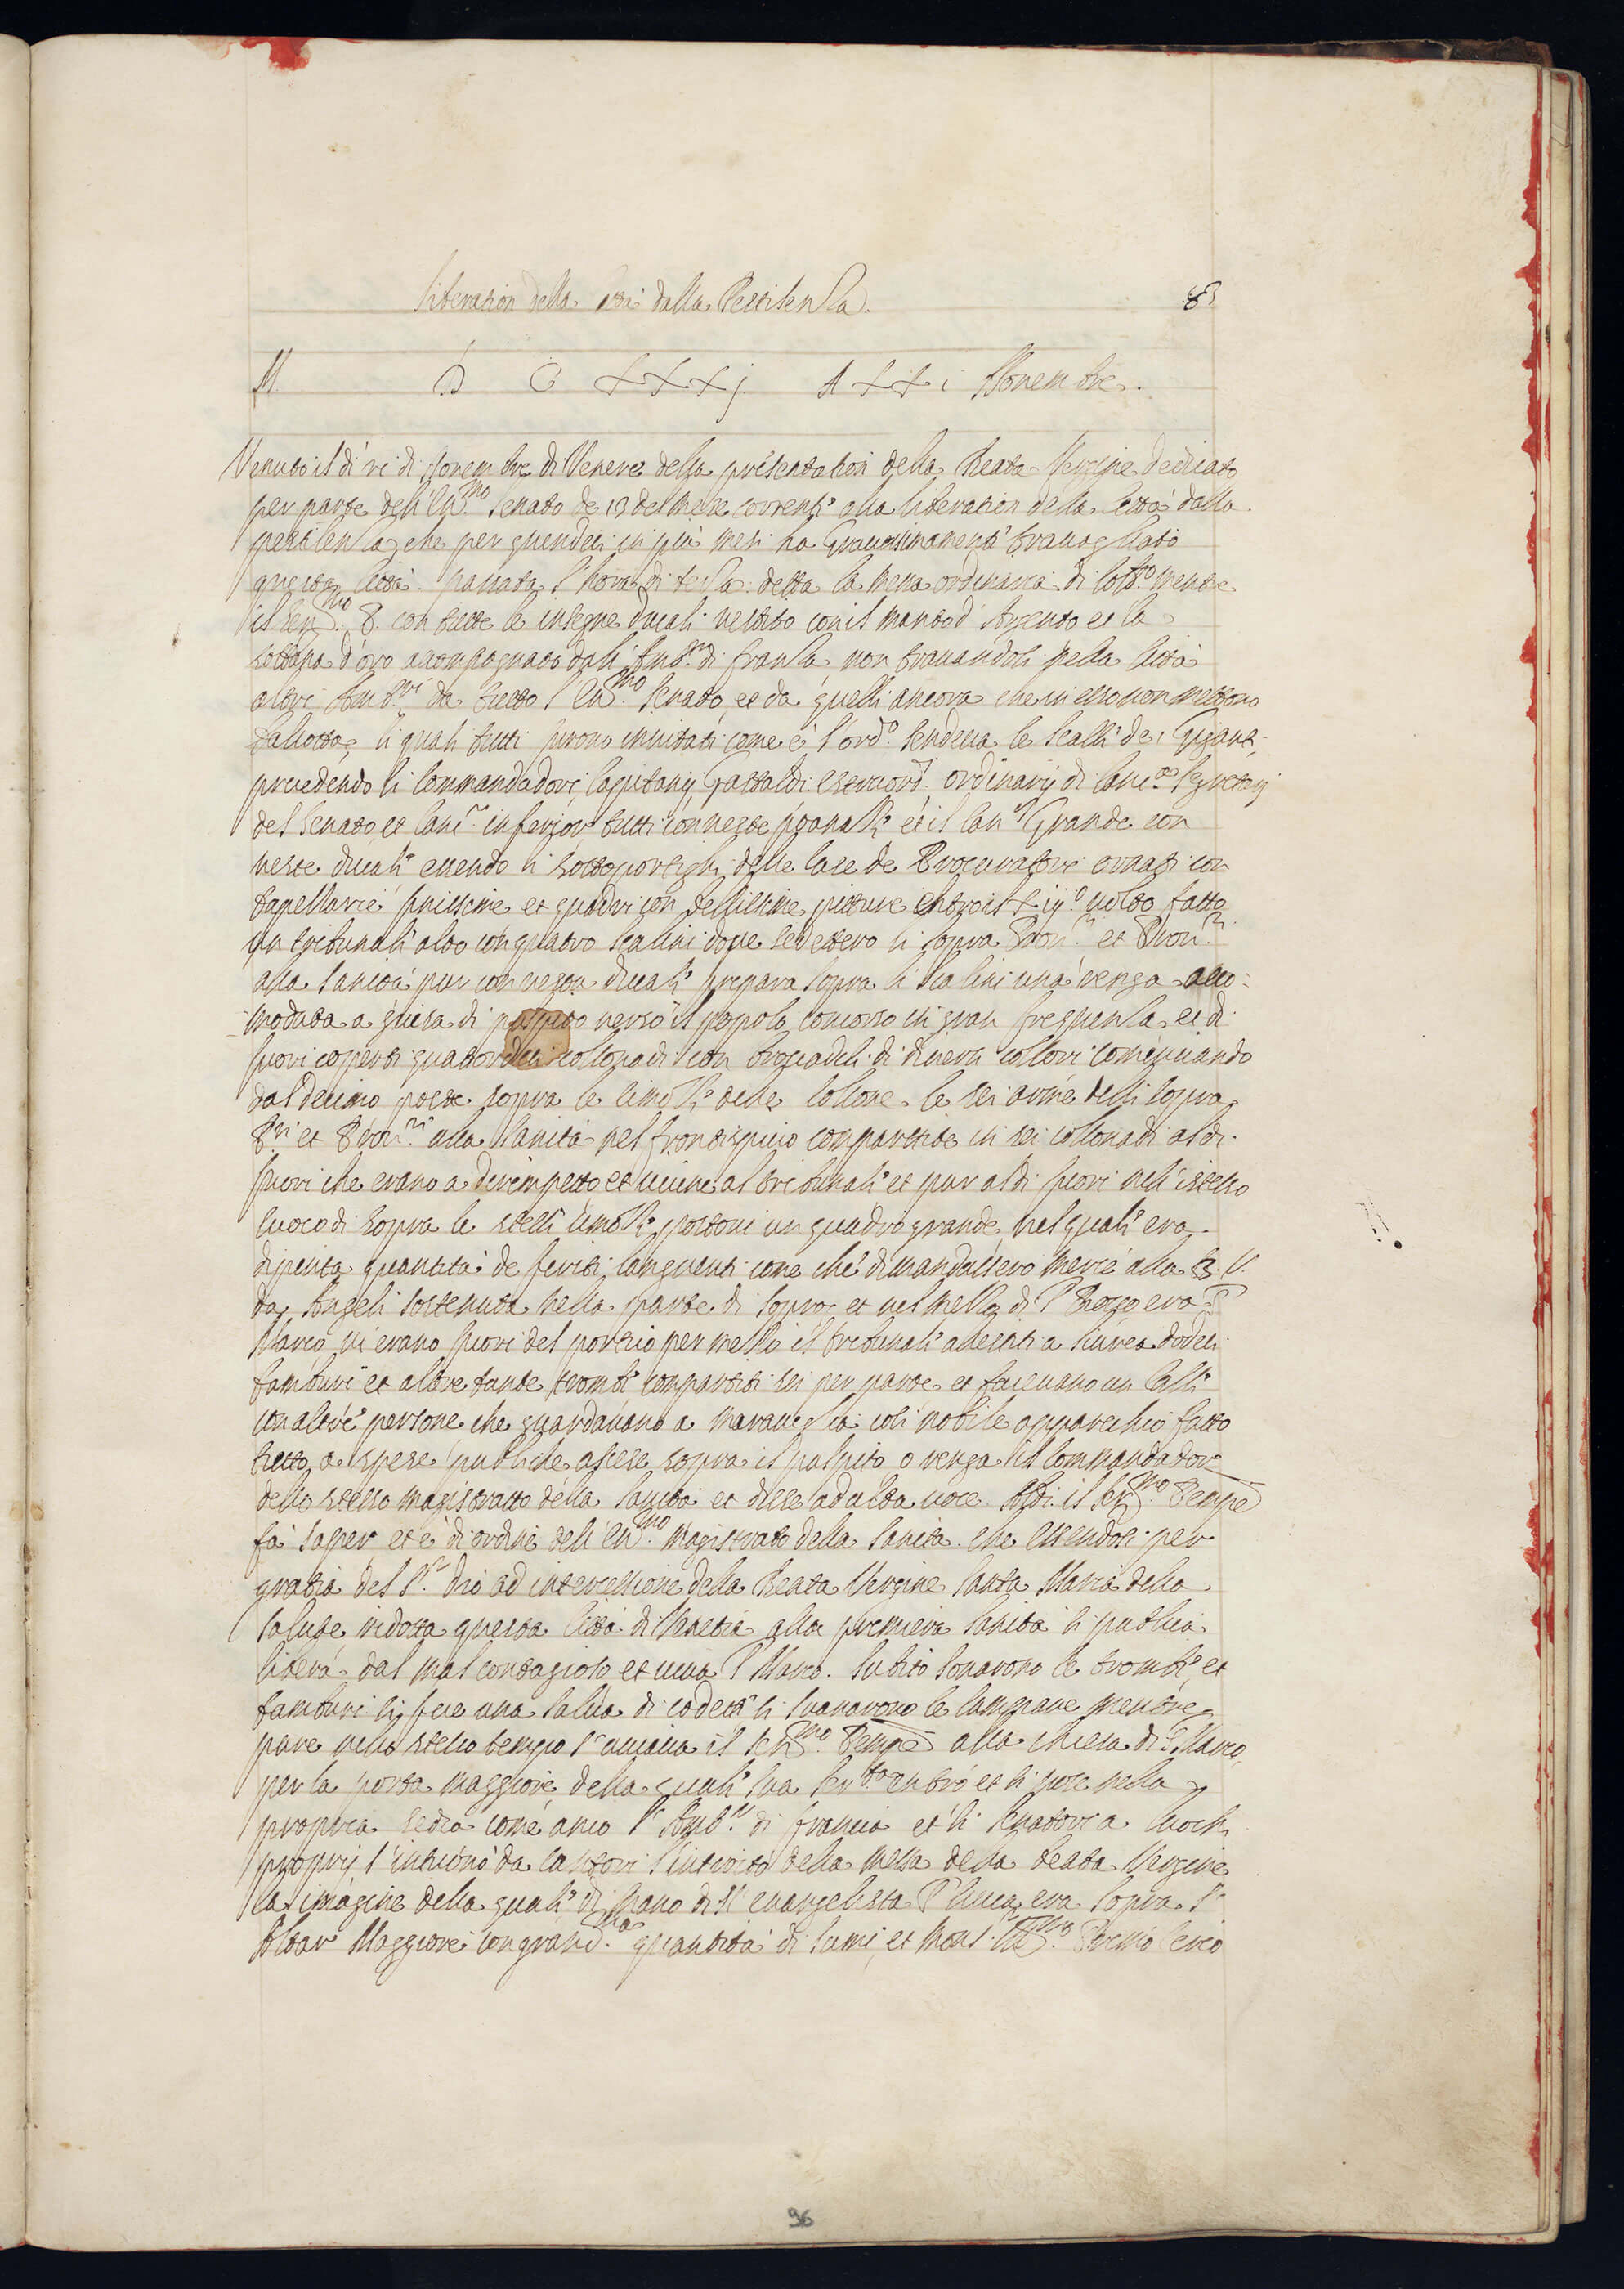 Liberation della Città dalla Pestilenza. 83
M D C XXXj. A XXi Novembre.
Venuto il dì xxi di Novembre di Venere della presentation della Beata Vergine dedicato
per parte dell'Ecc.mo Senato de 13 del mese corrente alla liberation della Città dalla
pestilenza, che per quendeci in più mesi ha gravissimamente travagliato
questa Città. passata l'hora di terza detta la messa ordinaria di Coll.o mentre
il Ser.mo P. con tutte le insegne ducali vestito con il manto d'Argento et la
sottana d'oro accompagnato dall'Amb.r di Franza, non trovandosi nella Città
altri Amb.ri da tutto l'Ecc.mo Senato, et da quelli ancora che in esso non mettono
ballotta, li quali tutti furono invitati come è l'ord.o scendeva le Scalle de Giganti,
precedendo li Commandadori, Capitanij Gastaldi estraord. ordinarij di Canc.a Segretarij
del Senato, et Canc.i inferiori tutti con veste paonazze et il Can.r Grande con
veste ducale essendo li sottoportighi delle Case de Procuratori ornati con
tapellarie finissime et quadri con bellissime pitture entro il Xiij.o volto fatto
un tribunale alto con quatro scalini dove sedettero li sopra Prov.ri et Prov.ri
alla Sanità pur con vesta ducale sopra li scalini una renga acco=
modata a guisa di pulpito verso il popolo concorso in gran frequenza, et di
fuori coperti quattordeci collonadi con brocadeli di diversi collori cominciando
dal decimo poste sopra le delle Collone le sei arme delli sopra
P.ri et Prov.ri alla Sanità nel frontispicio compartite in sei collonadi al di
fuori che erano a dirimpetto et vicine al tribunale et pur al di fuori nell'istesso
luoco di sopra le un quadro grande, nel quale era
dipenta quantità de feriti, languenti come che dimandassero mercè alla B. V.
da Angeli sostenuta nella parte di sopra et nel mezzo di S. Rocco era S.
Marco, vi erano fuori del portico per mezzo il tribunale dodeci
tamburi et altre tante trombe compartiti sei per parte et facevano un
con altre persone che guardavano a maraveglia così nobile apparechio fatto
tutto a spese publiche ascese sopra il pulpito o renga il Commandador
dello stesso magistratto della Sanità et disse ad alta voce. Il Ser.mo Prencipe
fa saper et è di ordine dell'Ecc.mo Magistrato della Sanità che essendosi per
gratia del S.r Dio ad intercessione della Beata Vergine Santa Maria della
Salute ridotta questa Città di Venetia alla premiera sanità si publica
libera dal mal contagioso et viva S. Marco. Subito sonarono le trombe et
tamburi si fece una salva di codette si suonarono le campane mentre
pure nello stesso tempo s'aviava il Ser.mo Prencipe alla Chiesa di S. Marco
per la porta maggiore della quale Sua Ser.tà entrò et si pose nella
propria sedia come anco l'Amb.r di Francia et li Senatori a luochi
proprij s'intuonò da Cantori l'introito della messa della beata Vergine
la imagine della quale di mano di S. evangelista S. Luca, era sopra l'
Altar Maggiore con grand.ma quantità di lumi, et Mons.
96